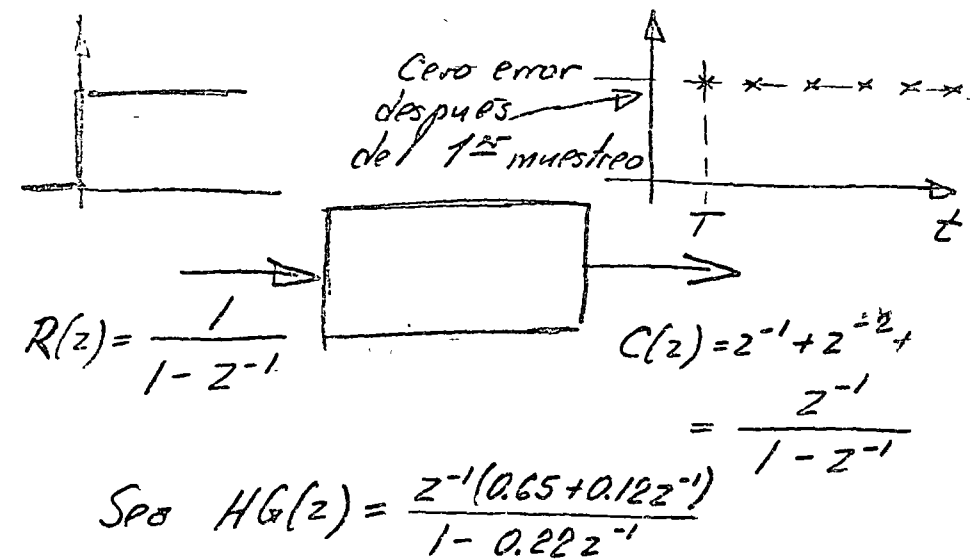 Cero error
después
del 1er muestreo
T
t
R(z) = 1 / (1 - z^-1)
C(z) = z^-1 + z^-2 +
= z^-1 / (1 - z^-1)
Sea HG(z) = z^-1(0.65 + 0.12z^-1) / (1 - 0.22z^-1)